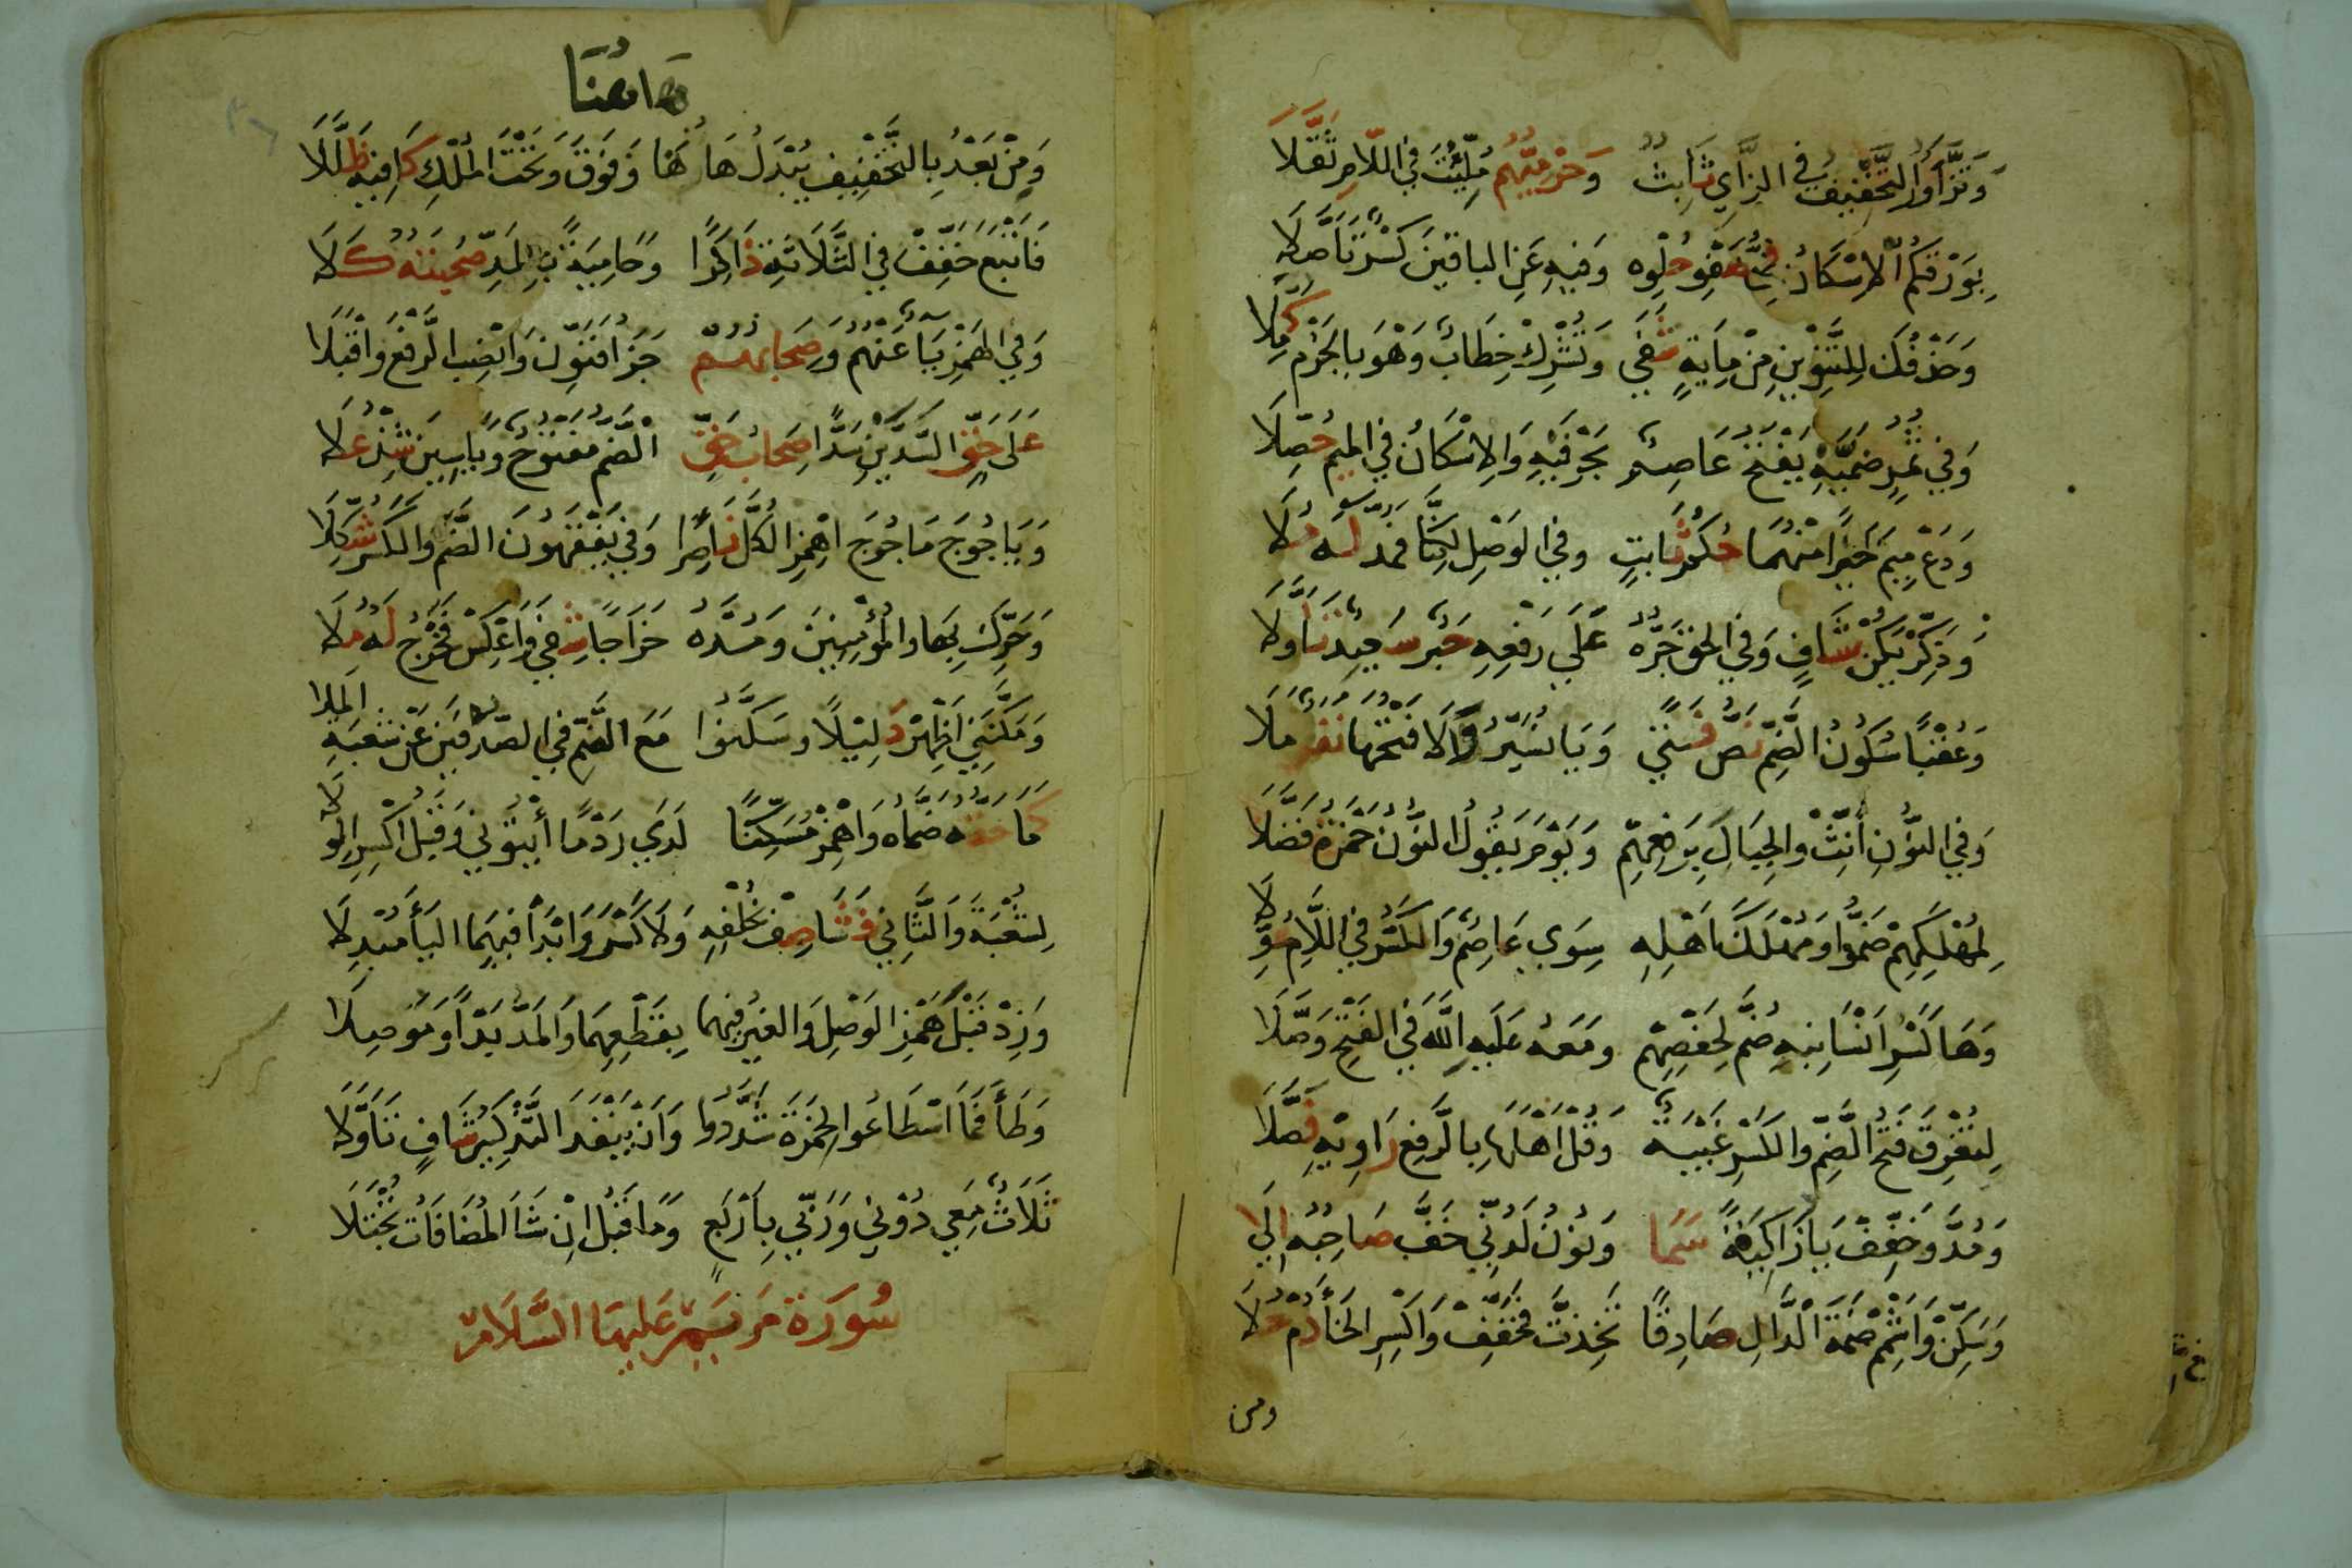 وَتَزَّاوَرُ التَّخْفِيفُ فِي الزَّايِ ثَابِتٌ وَحِرْمِيُّهُمْ مُلِّيْتَ فِي اللَّامِ ثَقَّلَا
بِوَرْقِكُمُ الْاِسْكَانُ فِي صَفْوِ حُلْوِهِ وَفِيهِ عَنِ الباقِينَ كَسْرٌ تَأَصَّلَا
وَحَذْفُكَ لِلتَّنْوِينِ مِنْ مِايَةٍ شَفَى وَتُشْرِكْ خِطَابٌ وَهْوَ بِالجَزْمِ كُمِّلَا
وَفِي ثُمُرٍ ضَمَّيْهِ يَفْتَحُ عَاصِمٌ بِحَرْفَيْهِ وَالاِسْكَانُ فِي المِيمِ حُصِّلَا
وَدَعْ مِيمَ خَيْرًا مِنْهُمَا حُكْمُ ثَابِتٍ وَفِي الوَصْلِ لكِنَّا فَمُدَّ لَهُ مُلَا
وَذَكِّرْ يَكُنْ شَافٍ وَفِي الحَقِّ جَرُّهُ عَلَى رَفْعِهِ حَبْرٌ سَعِيدٌ تَأَوَّلَا
وَعُقْبًا سُكُونُ الضَّمِّ نَصُّ فَتًى وَيَا نُسَيِّرُ وَالَا فَتْحَهَا نَفَرٌ مَلَا
وَفِي النُّونِ أَنِّثْ وَالجِبَالَ بِرَفْعِهِمْ وَيَوْمَ يَقُولُ النُّونُ حَمْزَةُ فَضَّلَا
لِمُهْلَكِهِمْ ضَمُّوا وَمُهْلَكَ اَهْلِهِ سِوَى عَاصِمٌ وَالكَسْرُ فِي اللَّامِ عُوِّلَا
وَهَا كَسْرِ اَنْسَانِيهِ ضُمَّ لِحَفْصِهِمْ وَمَعْهُ عَلَيْهِ اللّٰهَ فِي الفَتْحِ وَصَّلَا
لِتُغْرِقَ فَتْحُ الضَّمِّ وَالكَسْرِ غَيْبَةٌ وَقُلْ اَهْلَهَا بِالرَّفْعِ رَاوِيْهِ فَصَّلَا
وَمُدَّ وَخَفِّفْ يَا زَاكِيَةً سَمَا وَنُونُ لَدُنِّي خَفَّ صَاحِبُهُ اِلَى
وَسَكِّنْ وَاشْمِمْ ضَمَّةَ الدَّالِ صَادِقًا تَخِذْتَ فَخَفِّفْ وَاكْسِرِ الخَاءَ دُمْ حُلَا
ومن
هَاهُنَا
وَمِنْ بَعْدُ بِالتَّخْفِيفِ يُبْدَلُ هَاهُنَا وَفَوْقَ وَتَحْتَ المُلْكِ كَافِيهِ ظَلَّلَا
فَاَتْبَعَ خَفِّفْ فِي الثَّلَاثَةِ ذَاكِرًا وَحَامِيَةً بِالمَدِّ صُحْبَتُهُ كَلَا
وَفِي الهَمْزِ يَاءٌ عَنْهُمُ وَصِحَابُهُمْ جَزَا فَنَوِّنْ وَانْصِبِ الرَّفْعَ وَاقْبَلَا
عَلَى حَقٍّ السَّدَّيْنِ سَدًّا صِحَابُ حَقٍّ الْضَّمُّ مَفْتُوحٌ وَيَاسِينَ شِدْ عُلَا
وَيَاجُوجَ مَاجُوجَ اهْمِزِ الكُلَّ نَاصِرًا وَفِي يَفْقَهُونَ الضَّمُّ وَالكَسْرُ شُكِّلَا
وَحَرِّكْ بِهَا وَالمُؤْمِنِينَ وَمُدَّهُ خَرَاجًا شَفَى وَاعْكِسْ فَخَرْجُ لَهُ مُلَا
وَمَكَّنَنِي اَظْهِرْ دَلِيلًا وَسَكَّنُوا مَعَ الضَّمِّ فِي الصُّدْفَيْنِ عَنْ شُعْبَةَ المَلَا
كَمَا حَقُّهُ ضَمَّاهُ وَاهْمِزْ مُسَكِّنًا لَدَى رَدْمًا اٰيْتُونِي وَقَبْلُ اكْسِرِ الوِلَا
لِشُعْبَةَ وَالثَّانِي فَشَا صِفْ بِخُلْفِهِ وَلَا كَسْرَ وَابْدَأْ فِيهِمَا اليَاءَ مُبْدِلَا
وَزِدْ قَبْلُ هَمْزَ الوَصْلِ وَالغَيْرُ فِيهِمَا بِقَطْعِهِمَا وَالمَدِّ بَدْءًا وَمَوْصِلَا
وَطَاءَ فَمَا اسْطَاعُوا لِحَمْزَةَ شَدَّدُوا وَاَنْ يَنْفَدَ التَّذْكِيرُ شَافٍ تَأَوَّلَا
ثَلَاثٌ مَعِي دُونِي وَرَبِّي بِاَرْبَعٍ وَمَا قَبْلُ اِنْ شَا المُضَافَاتُ تُجْتَلَا
سُورَة مَرْيَمَ عَلَيهَا السَّلَامْ